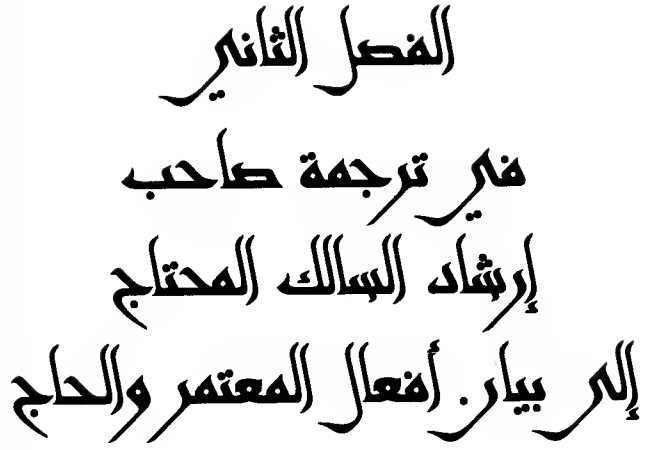 الفصل الثاني
في ترجمة صاحب
إرشاد السالك المحتاج
إلى بيان أفعال المعتمر والحاج